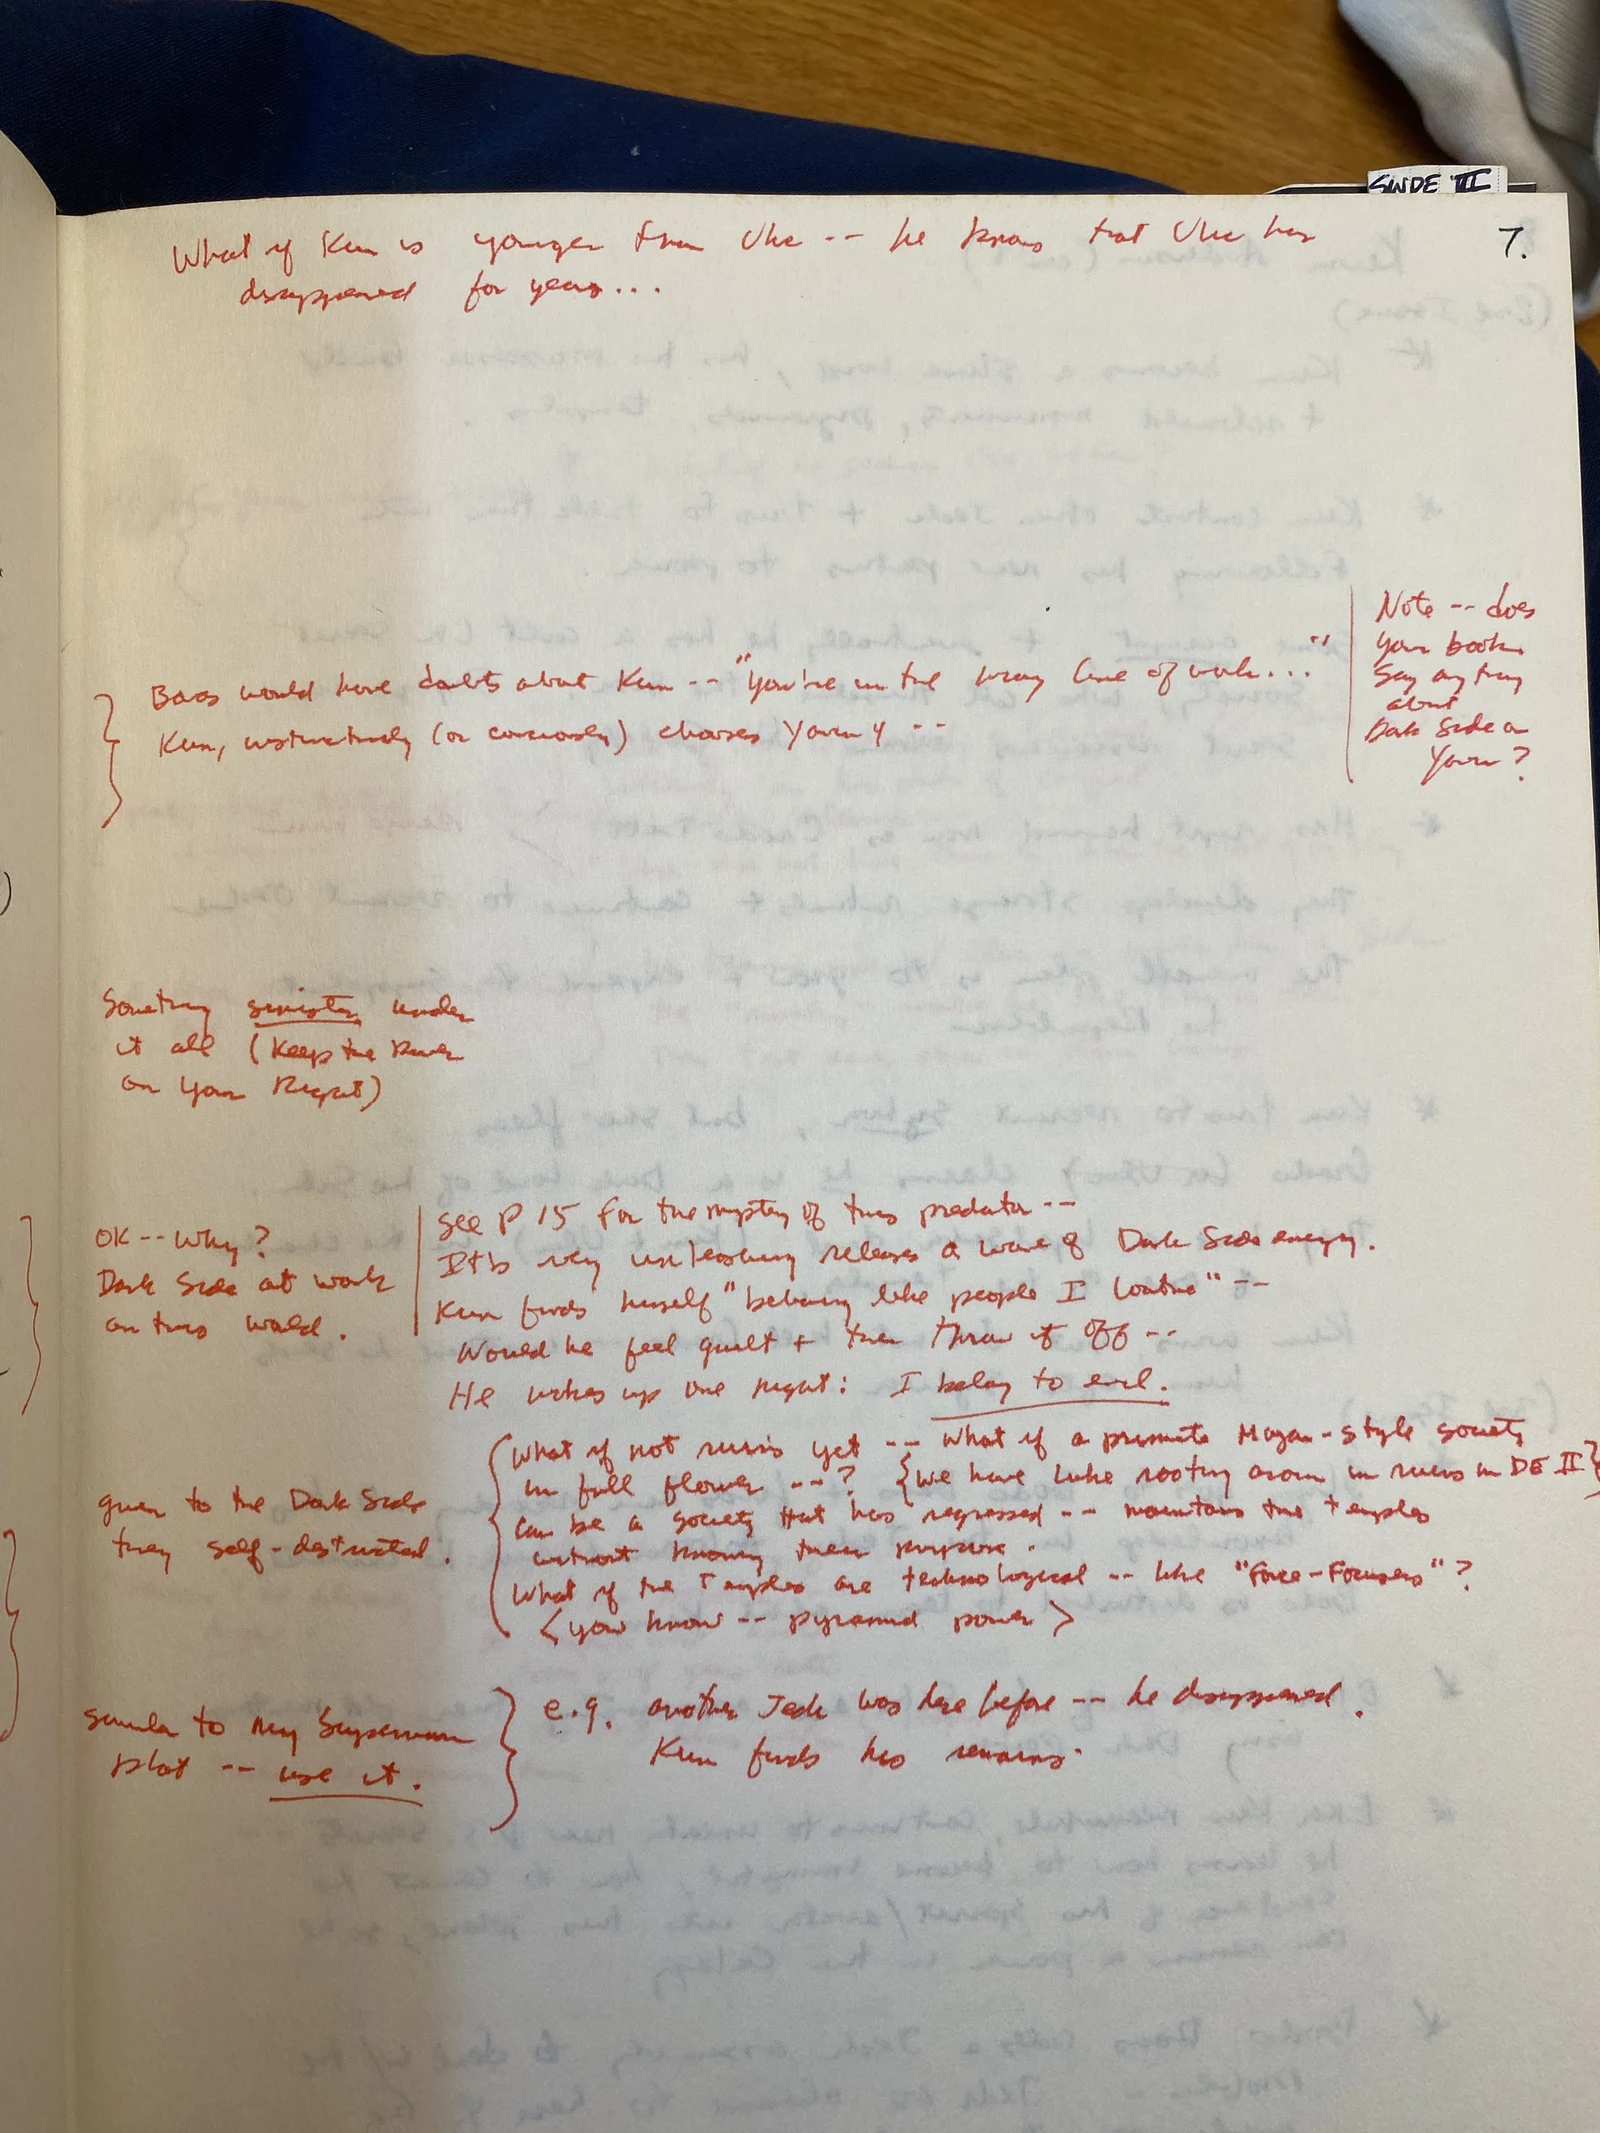 SWDE III
7.
What if Kun is younger than Ulic -- he knows that Ulic has
disappeared for years...
Note -- does
your book
say anything
about
Dark Side on
Yavin?
Baas would have doubts about Kun -- "You're in the wrong line of work..."
Kun, instinctively (or consciously) chooses Yavin 4 --
Something sinister under
it all (Keep the River
on Your Right)
OK -- Why?
Dark Side at work
on this world.
See P 15 for the mystery of this predator --
It's very unleashing releases a wave of Dark Side energy.
Kun finds himself "behaving like people I loathe" --
Would he feel guilt + then throw it off --
He wakes up one night: I belong to evil.
given to the Dark Side
they self-destructed.
What if not ruins yet -- What if a primitive Mayan-style society
in full flower --? {We have Luke rooting around in ruins in DE II}
Can be a society that has regressed -- maintains the temples
without knowing their purpose.
What if the Temples are technological -- like "Force-Focusers"?
<you know -- pyramid power>
Similar to my Superman
plot -- use it.
e.g. another Jedi was here before -- he disappeared.
Kun finds his remains.